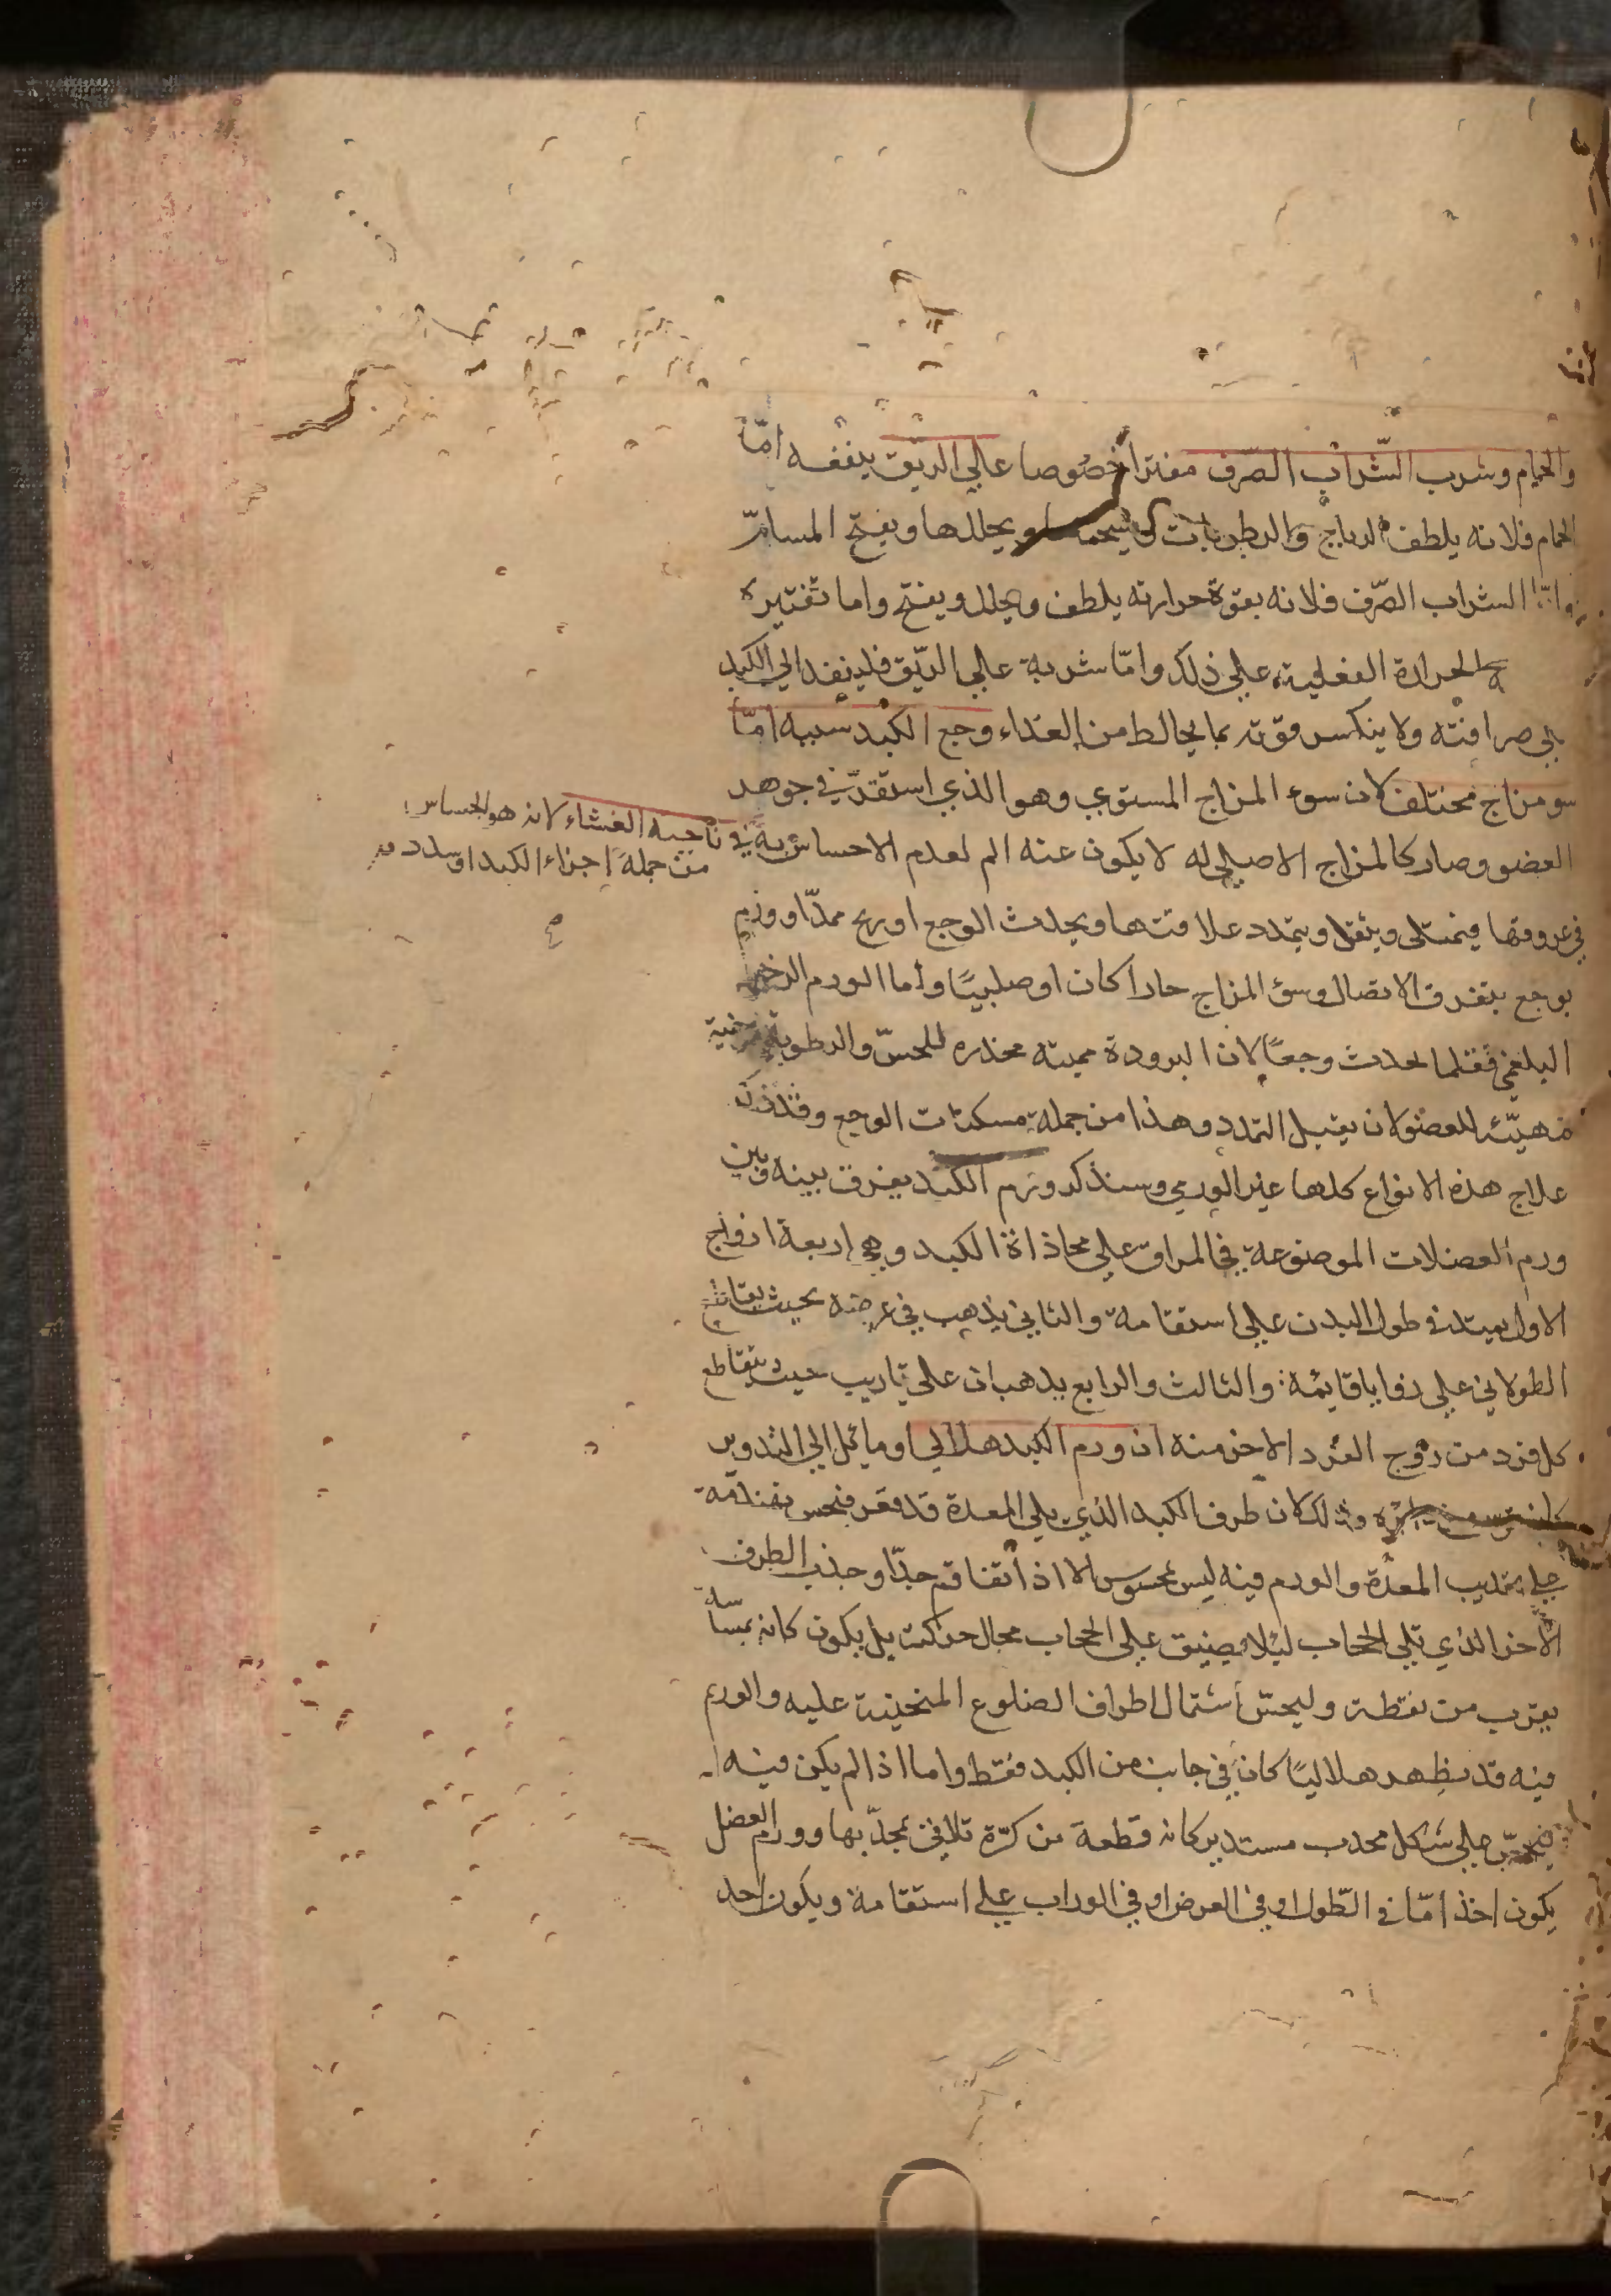 والحمام وشرب الشراب الصرف مفترا خصوصا على الريق ينفعه امّا
الحمام فلانه يلطف الرياح والرطوبات ويحللها ويفتح المسامّ
وامّا الشراب الصّرف فلانه بقوة حرارته يلطف ويحلل ويفتح واما تفتيره
الحرارة الفعلية على ذلك وامّا شربه على الريّق فلينفد الي الكبد
على صرافته ولا ينكسر قوته بما يخالط من الغذاء وجع الكبد سببه امّا
سو مزاج مختلف لان سوء المزاج المستوي وهو الذي استقرّ في جوهر
العضو وصار كالمزاج الاصلي له لا يكون عنه الم لعدم الاحساس به في ناحيه الغشاء لانه هو الحساس
من جملة اجزاء الكبد او سدد
في عروقها فيمتلى ويثقل ويتمدد علاقتها ويحدث الوجع او ريح ممدّ او ورم
يوجع بتفرق الاتصال وسؤ المزاج حارا كان او صلبيًا وأما الورم الرخو
البلغمي فقلما يحدث وجعًا لان البرودة مميته مخدره للحسّ والرطوبة مرخية
مهيّئه للعضو لان يقبل التمدد وهذا من جملة مسكنات الوجع وقد ذكر
علاج هذه الانواع كلها غير الورمي وسنذكر ورم الكبد يفرق بينه وبين
ورم العضلات الموضوعة في المراق على محاذاة الكبد وهي اربعة ازواج
الاول يمتد في طول البدن على استقامة والثاني يذهب في عرضه بحيث يقاطع
الطولاني على زوايا قايمة والثالث والرابع يذهبان على تاريب حيث يتقاطع
كل فرد من زوج الفرد الاخر منه ان ورم الكبد هلالي او مائل الي التدوير
وذلك لان طرف الكبد الذي يلي المعدة قد قعر
على تحديب المعدة والورم فيه ليس بمحسوس الا اذا تفاقم جدّا وحذب الطرف
الآخر الذي تلي الحجاب لئلا يضيق على الحجاب مجال حركته بل يكون كانه يماسّه
بقرب من نقطة وليحسن اشتمال اطراف الضلوع المنحنية عليه والورم
فيه قد يظهر هلاليًا كان في جانب من الكبد فقط واما اذا لم يكن فيه
على شكل محدب مستدير كانه قطعة من كرّة تلاقي بمحدّبها وورم العضل
يكون اخذ امّا في الطّول او في العرض او في الوراب على استقامة ويكون احد